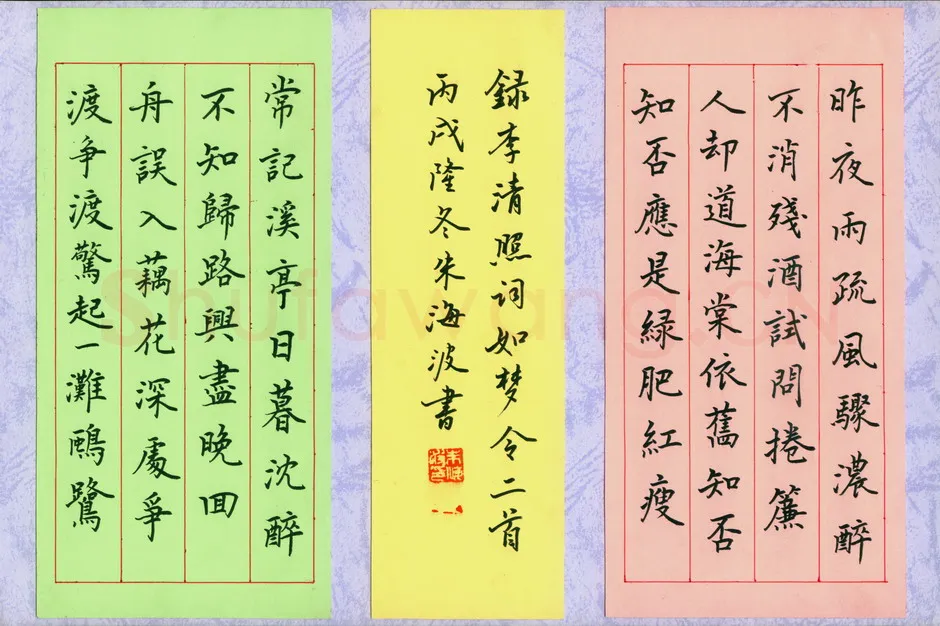 昨夜雨疏風驟濃醉
不消殘酒試問捲簾
人却道海棠依舊知否
知否應是緑肥紅瘦
録李清照词如梦令二首
丙戌隆冬朱海波書
常記溪亭日暮沈醉
不知歸路興盡晚回
舟誤入藕花深處爭
渡爭渡驚起一灘鷗鷺
Shufawang.CN